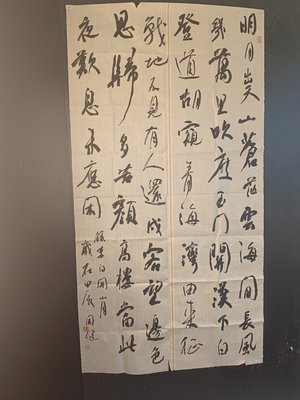 明月出天山蒼茫雲海間長風
幾萬里吹度玉門關漢下白
登道胡窺青海灣由來征
戰地不見有人還戍客望邊色
思歸多苦顏高樓當此
夜歎息未應閑
錄李白關山月
歲在甲辰周